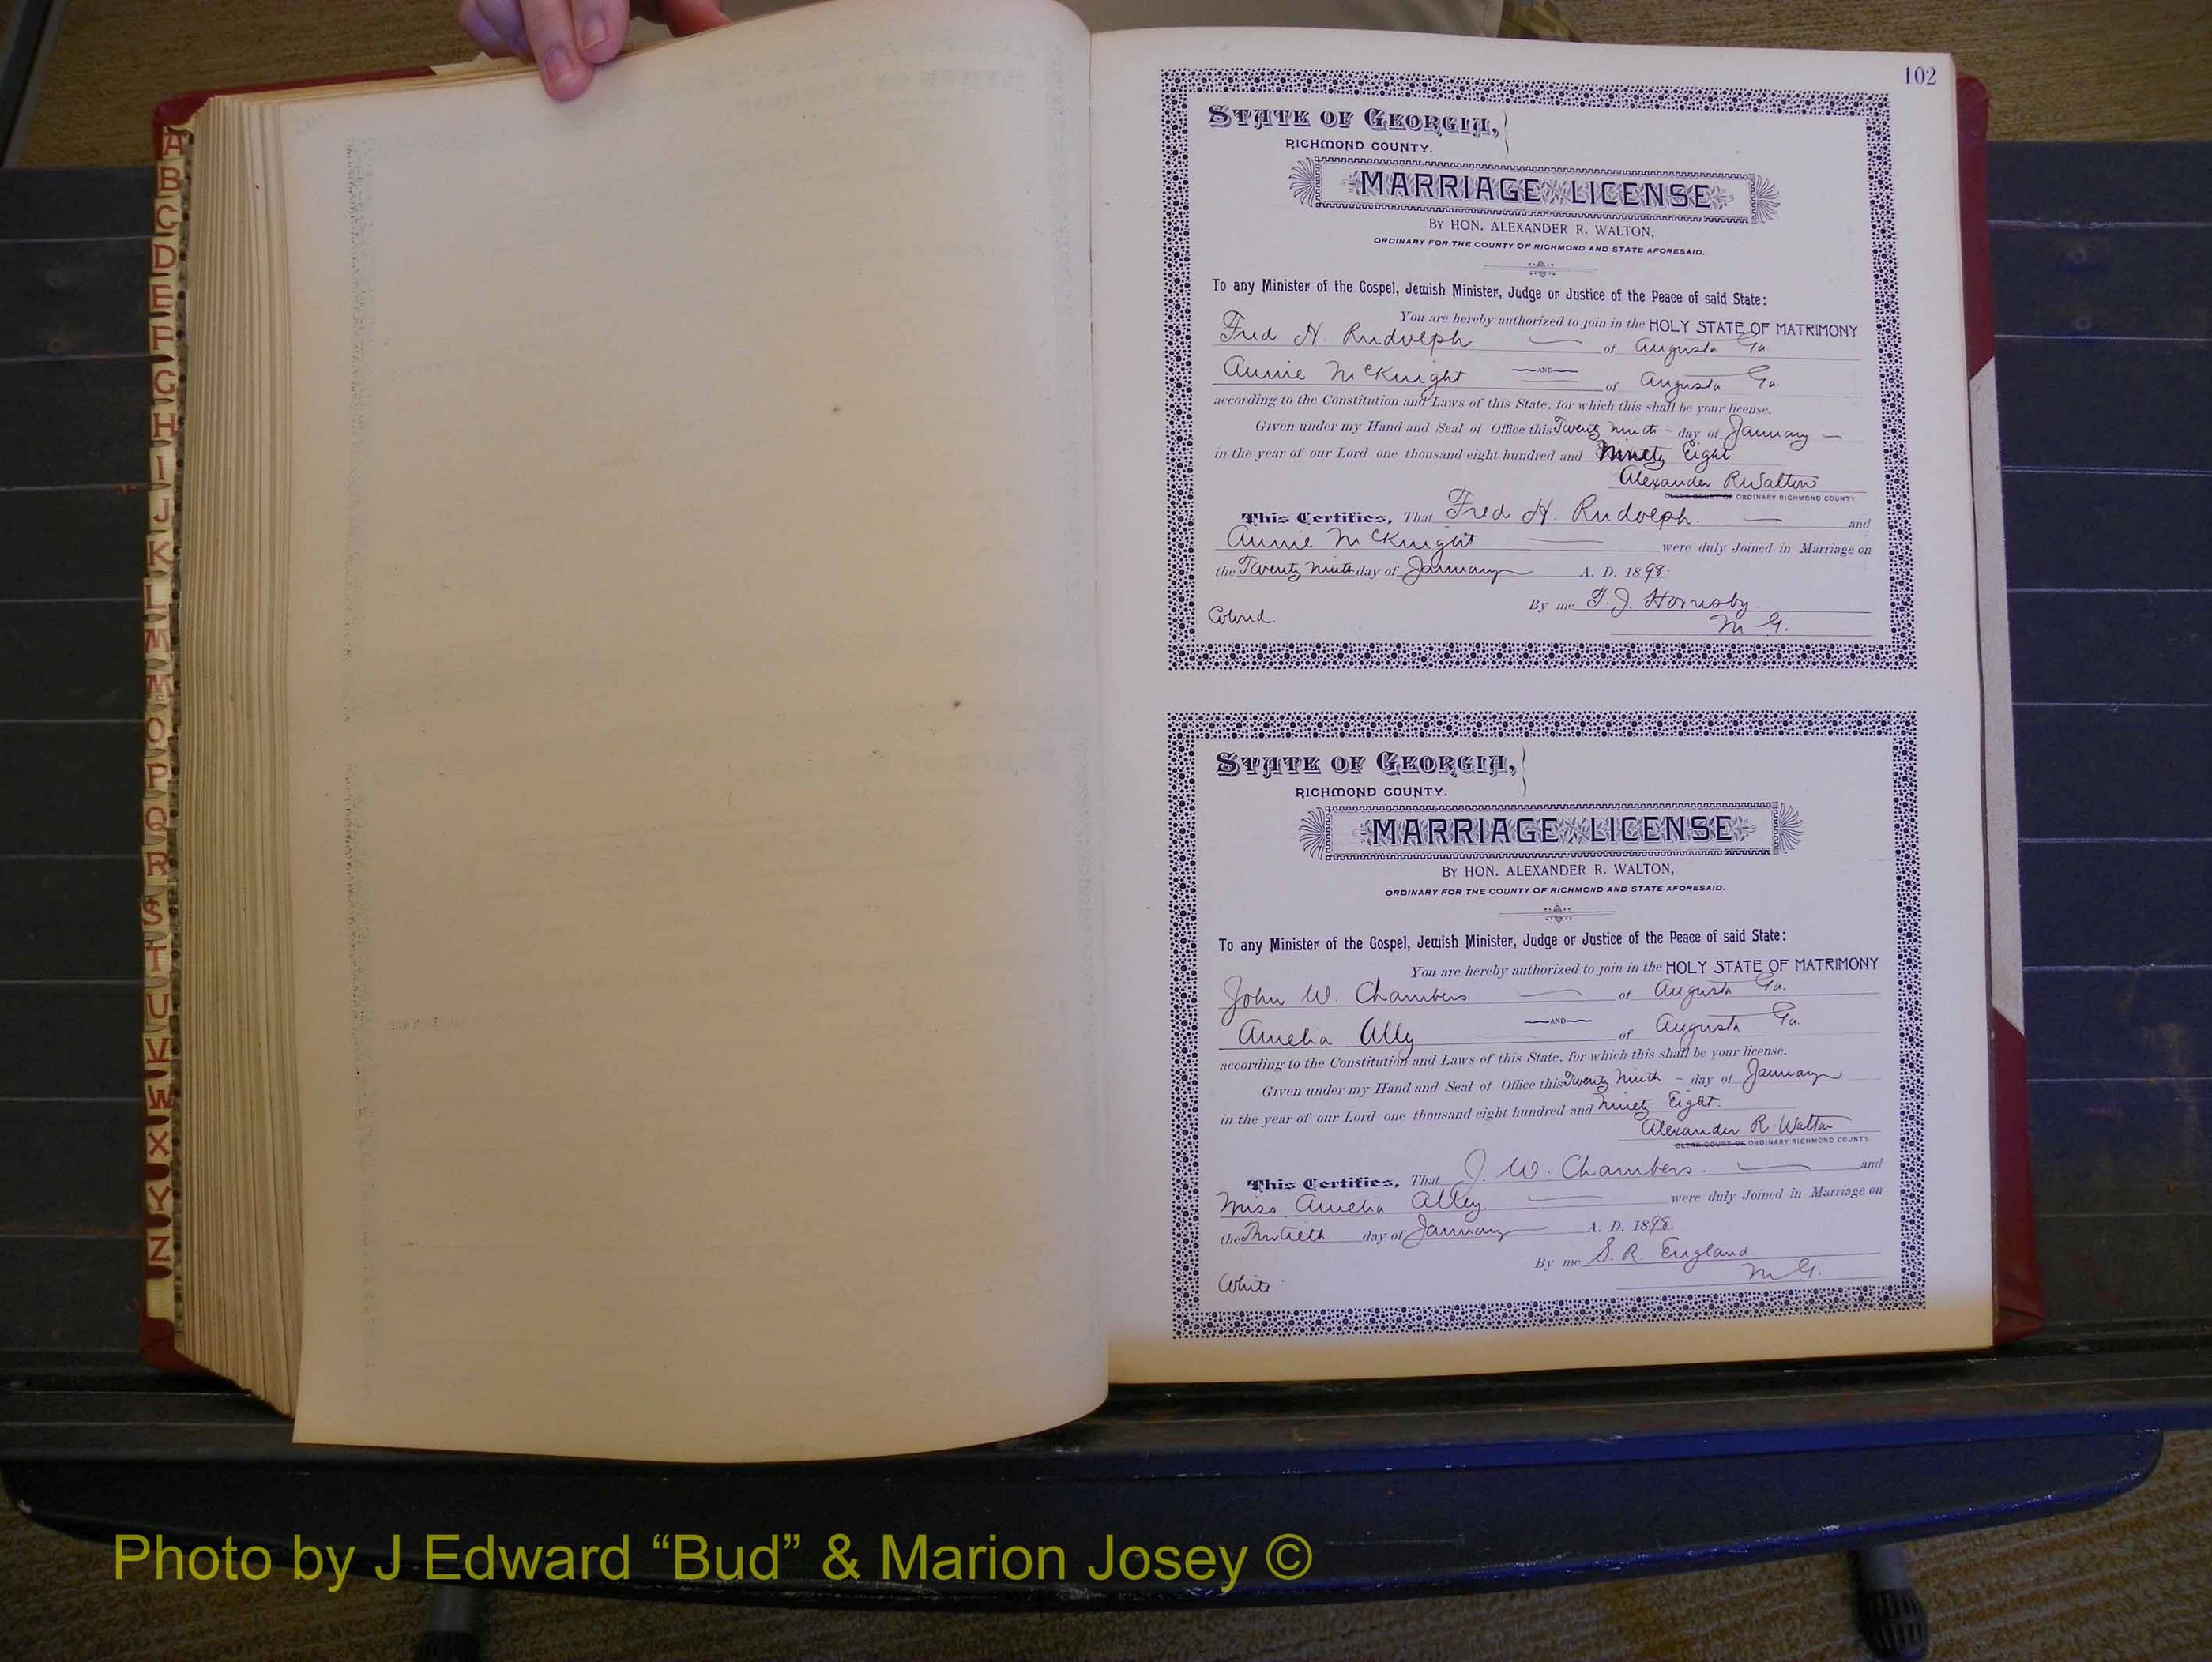 102
STATE OF GEORGIA,
RICHMOND COUNTY.
MARRIAGE LICENSE
BY HON. ALEXANDER R. WALTON,
ORDINARY FOR THE COUNTY OF RICHMOND AND STATE AFORESAID.
To any Minister of the Gospel, Jewish Minister, Judge or Justice of the Peace of said State:
You are hereby authorized to join in the HOLY STATE OF MATRIMONY
Fred H. Rudolph of Augusta Ga.
Annie McKnight AND of Augusta Ga.
according to the Constitution and Laws of this State, for which this shall be your license.
Given under my Hand and Seal of Office this Twenty Ninth - day of January
in the year of our Lord one thousand eight hundred and Ninety Eight
Alexander R Walton
CLERK COURT OF ORDINARY RICHMOND COUNTY
This Certifies, That Fred H. Rudolph. and
Annie McKnight were duly Joined in Marriage on
the Twenty Ninth day of January A. D. 1898.
By me T. J. Hornsby
Colored. M G.
STATE OF GEORGIA,
RICHMOND COUNTY.
MARRIAGE LICENSE
BY HON. ALEXANDER R. WALTON,
ORDINARY FOR THE COUNTY OF RICHMOND AND STATE AFORESAID.
To any Minister of the Gospel, Jewish Minister, Judge or Justice of the Peace of said State:
You are hereby authorized to join in the HOLY STATE OF MATRIMONY
John W. Chambers of Augusta Ga.
Amelia Ally AND of Augusta Ga.
according to the Constitution and Laws of this State, for which this shall be your license.
Given under my Hand and Seal of Office this Twenty Ninth - day of January
in the year of our Lord one thousand eight hundred and Ninety Eight.
Alexander R Walton
CLERK COURT OF ORDINARY RICHMOND COUNTY
This Certifies, That J. W. Chambers. and
Miss Amelia Alley. were duly Joined in Marriage on
the Thirtieth day of January A. D. 1898
By me S. R. England
White M G.
A
B
C
D
E
F
G
H
I
J
K
L
M
O
P
Q
R
S
T
U
V
W
X
Y
Z
Photo by J Edward “Bud” & Marion Josey ©